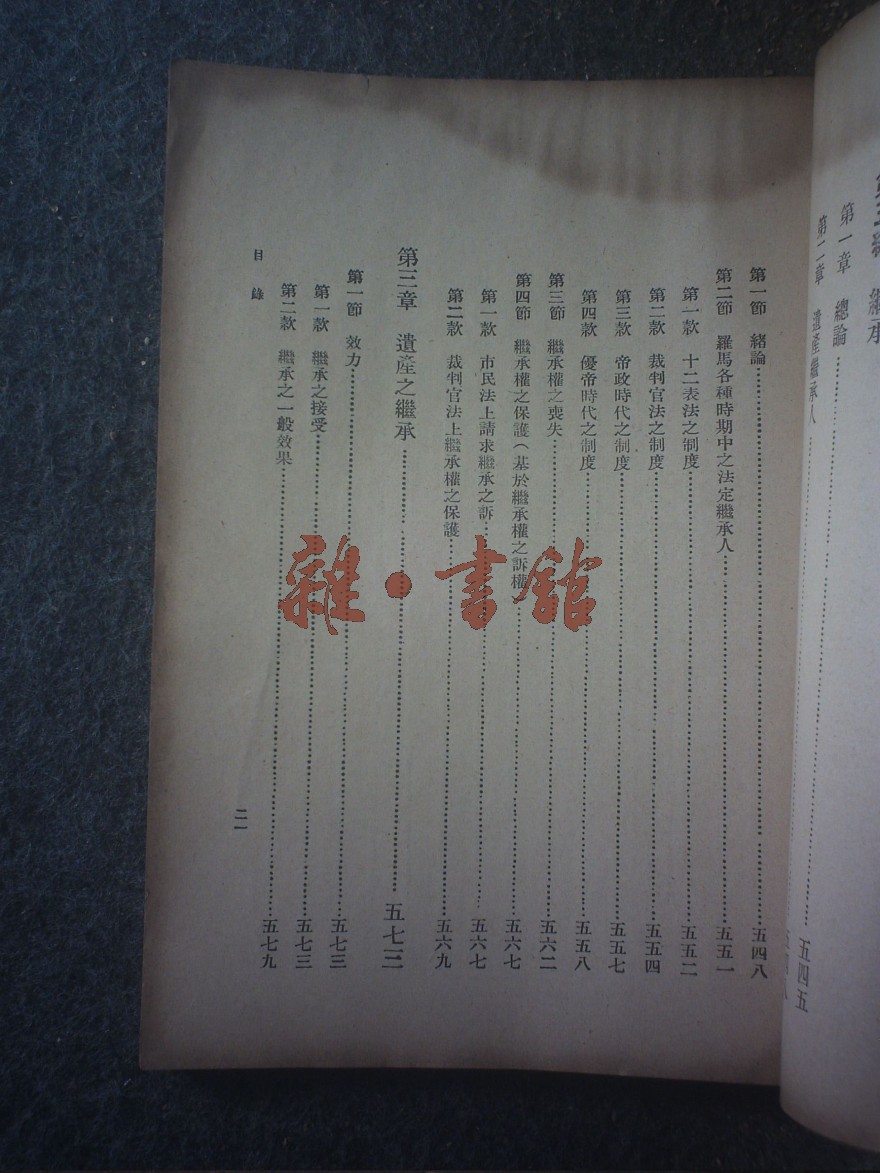 第一章 總論……五四五
第二章 遺產繼承人……
第一節 緒論……五四八
第二節 羅馬各種時期中之法定繼承人……五五一
第一款 十二表法之制度……五五二
第二款 裁判官法之制度……五五四
第三款 帝政時代之制度……五五七
第四款 優帝時代之制度……五五八
第三節 繼承權之喪失……五六二
第四節 繼承權之保護(基於繼承權之訴權)……五六七
第一款 市民法上請求繼承之訴……五六七
第二款 裁判官法上繼承權之保護……五六九
第三章 遺產之繼承……五七三
第一節 效力……五七三
第一款 繼承之接受……五七三
第二款 繼承之一般效果……五七九
目錄
二一
雜·書館